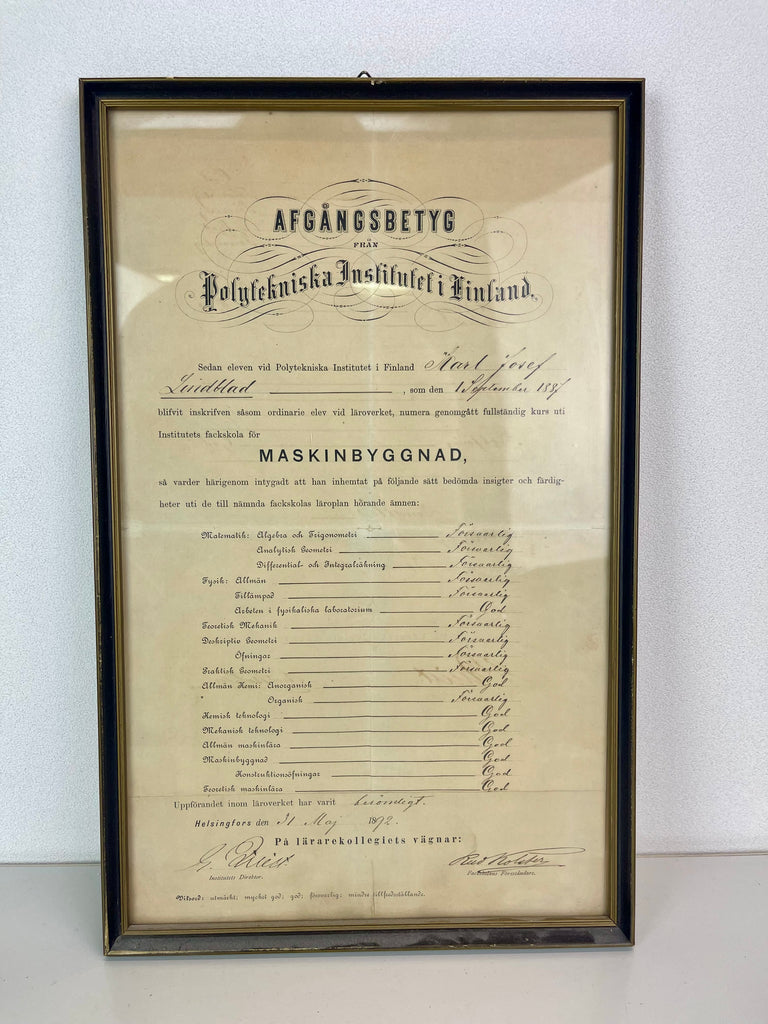 AFGÅNGSBETYG
FRÅN
Polytekniska Institutet i Finland.
Sedan eleven vid Polytekniska Institutet i Finland Karl Josef
Lindblad, som den 1 September 1887
blifvit inskrifven såsom ordinarie elev vid läroverket, numera genomgått fullständig kurs uti
Institutets fackskola för
MASKINBYGGNAD,
så varder härigenom intygadt att han inhemtat på följande sätt bedömda insigter och färdig-
heter uti de till nämnda fackskolas läroplan hörande ämnen:
Matematik: Algebra och Trigonometri Försvarlig
Analytisk Geometri Försvarlig
Differential- och Integralräkning Försvarlig
Fysik: Allmän Försvarlig
Tillämpad Försvarlig
Arbeten i fysikaliska laboratorium God
Teoretisk Mekanik Försvarlig
Deskriptiv Geometri Försvarlig
Öfningar Försvarlig
Praktisk Geometri Försvarlig
Allmän Kemi: Anorganisk God
" Organisk Försvarlig
Kemisk teknologi God
Mekanisk teknologi God
Allmän maskinlära God
Maskinbyggnad God
Konstruktionsöfningar God
Teoretisk maskinlära God
Uppförandet inom läroverket har varit berömligt.
Helsingfors den 31 Maj 1892.
På lärarekollegiets vägnar:
G. Rud Kolster
Institutets Direktor. Fackskolans Föreståndare.
Vitsord: utmärkt; mycket god; god; försvarlig; mindre tillfredsställande.